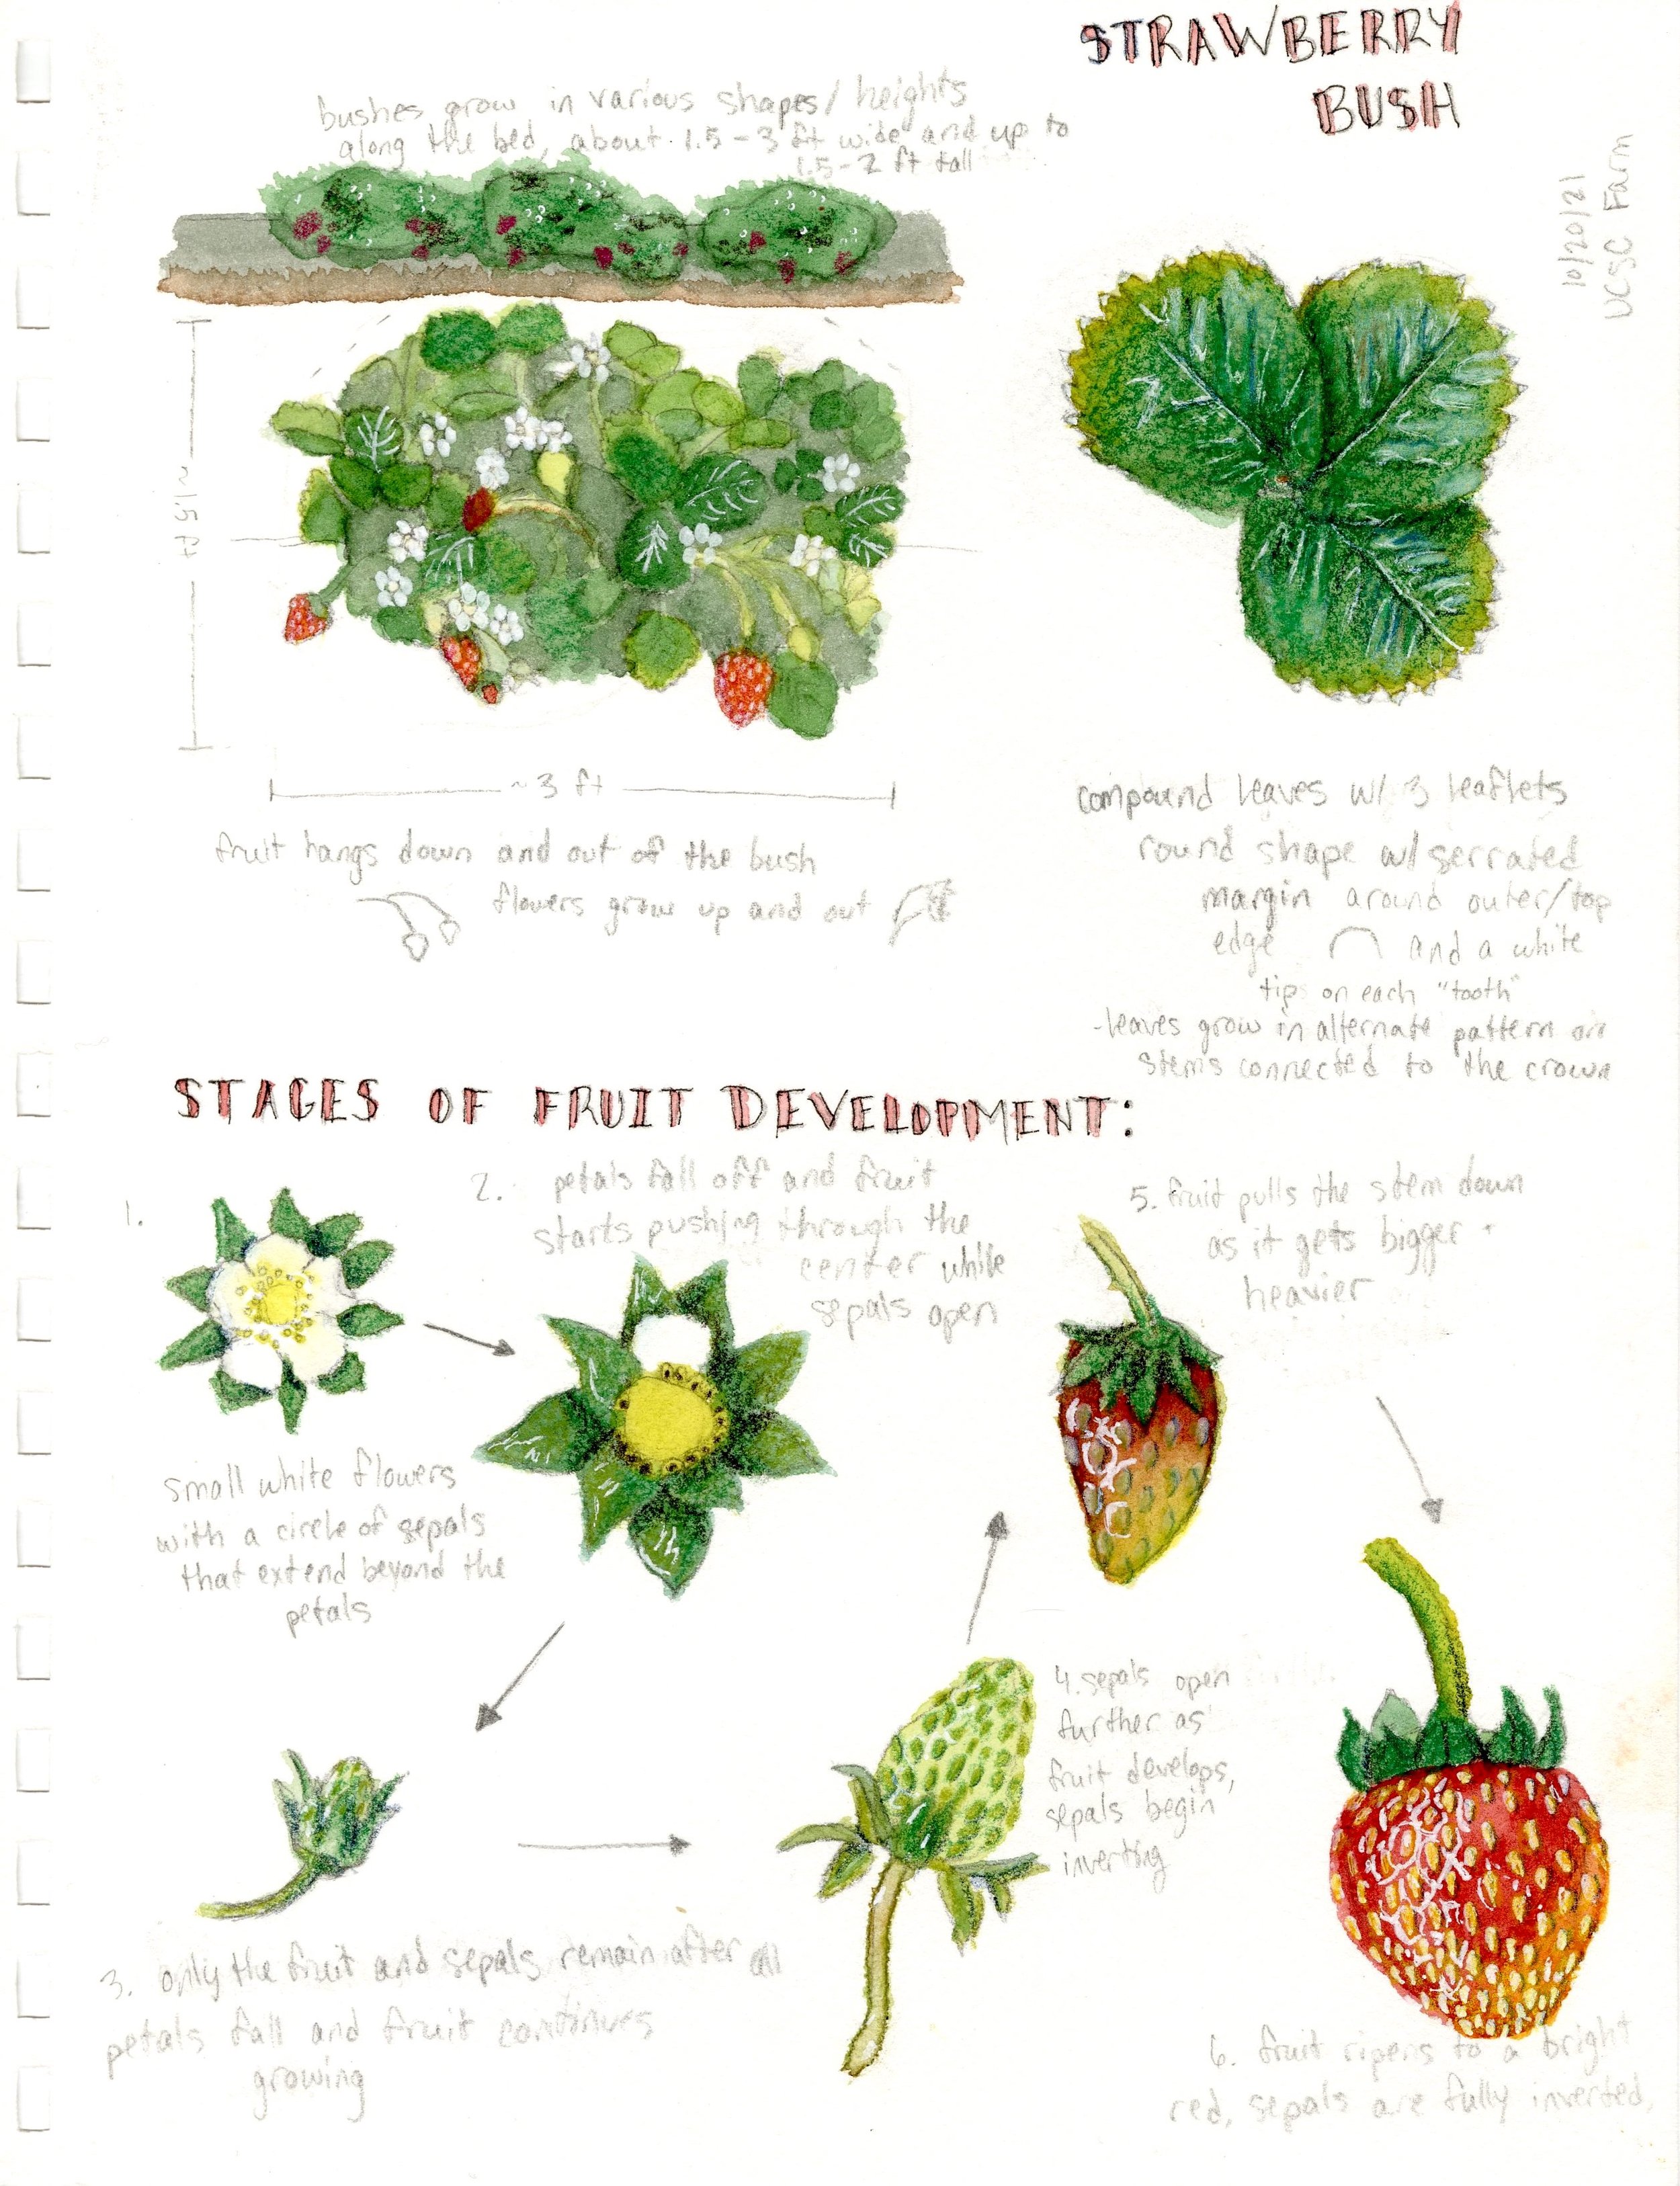 STRAWBERRY
BUSH
10/20/21
UCSC Farm
bushes grow in various shapes/heights
along the bed, about 1.5-3 ft wide and up to
1.5-2 ft tall
~1.5 ft
~3 ft
fruit hangs down and out of the bush
flowers grow up and out
compound leaves w/ 3 leaflets
round shape w/ serrated
margin around outer/top
edge and a white
tip on each "tooth"
-leaves grow in alternate pattern on
stems connected to the crown
STAGES OF FRUIT DEVELOPMENT:
1.
small white flowers
with a circle of sepals
that extend beyond the
petals
2. petals fall off and fruit
starts pushing through the
center while
sepals open
3. only the fruit and sepals remain after all
petals fall and fruit continues
growing
4. sepals open
further as
fruit develops,
sepals begin
inverting
5. fruit pulls the stem down
as it gets bigger +
heavier
6. fruit ripens to a bright
red, sepals are fully inverted,